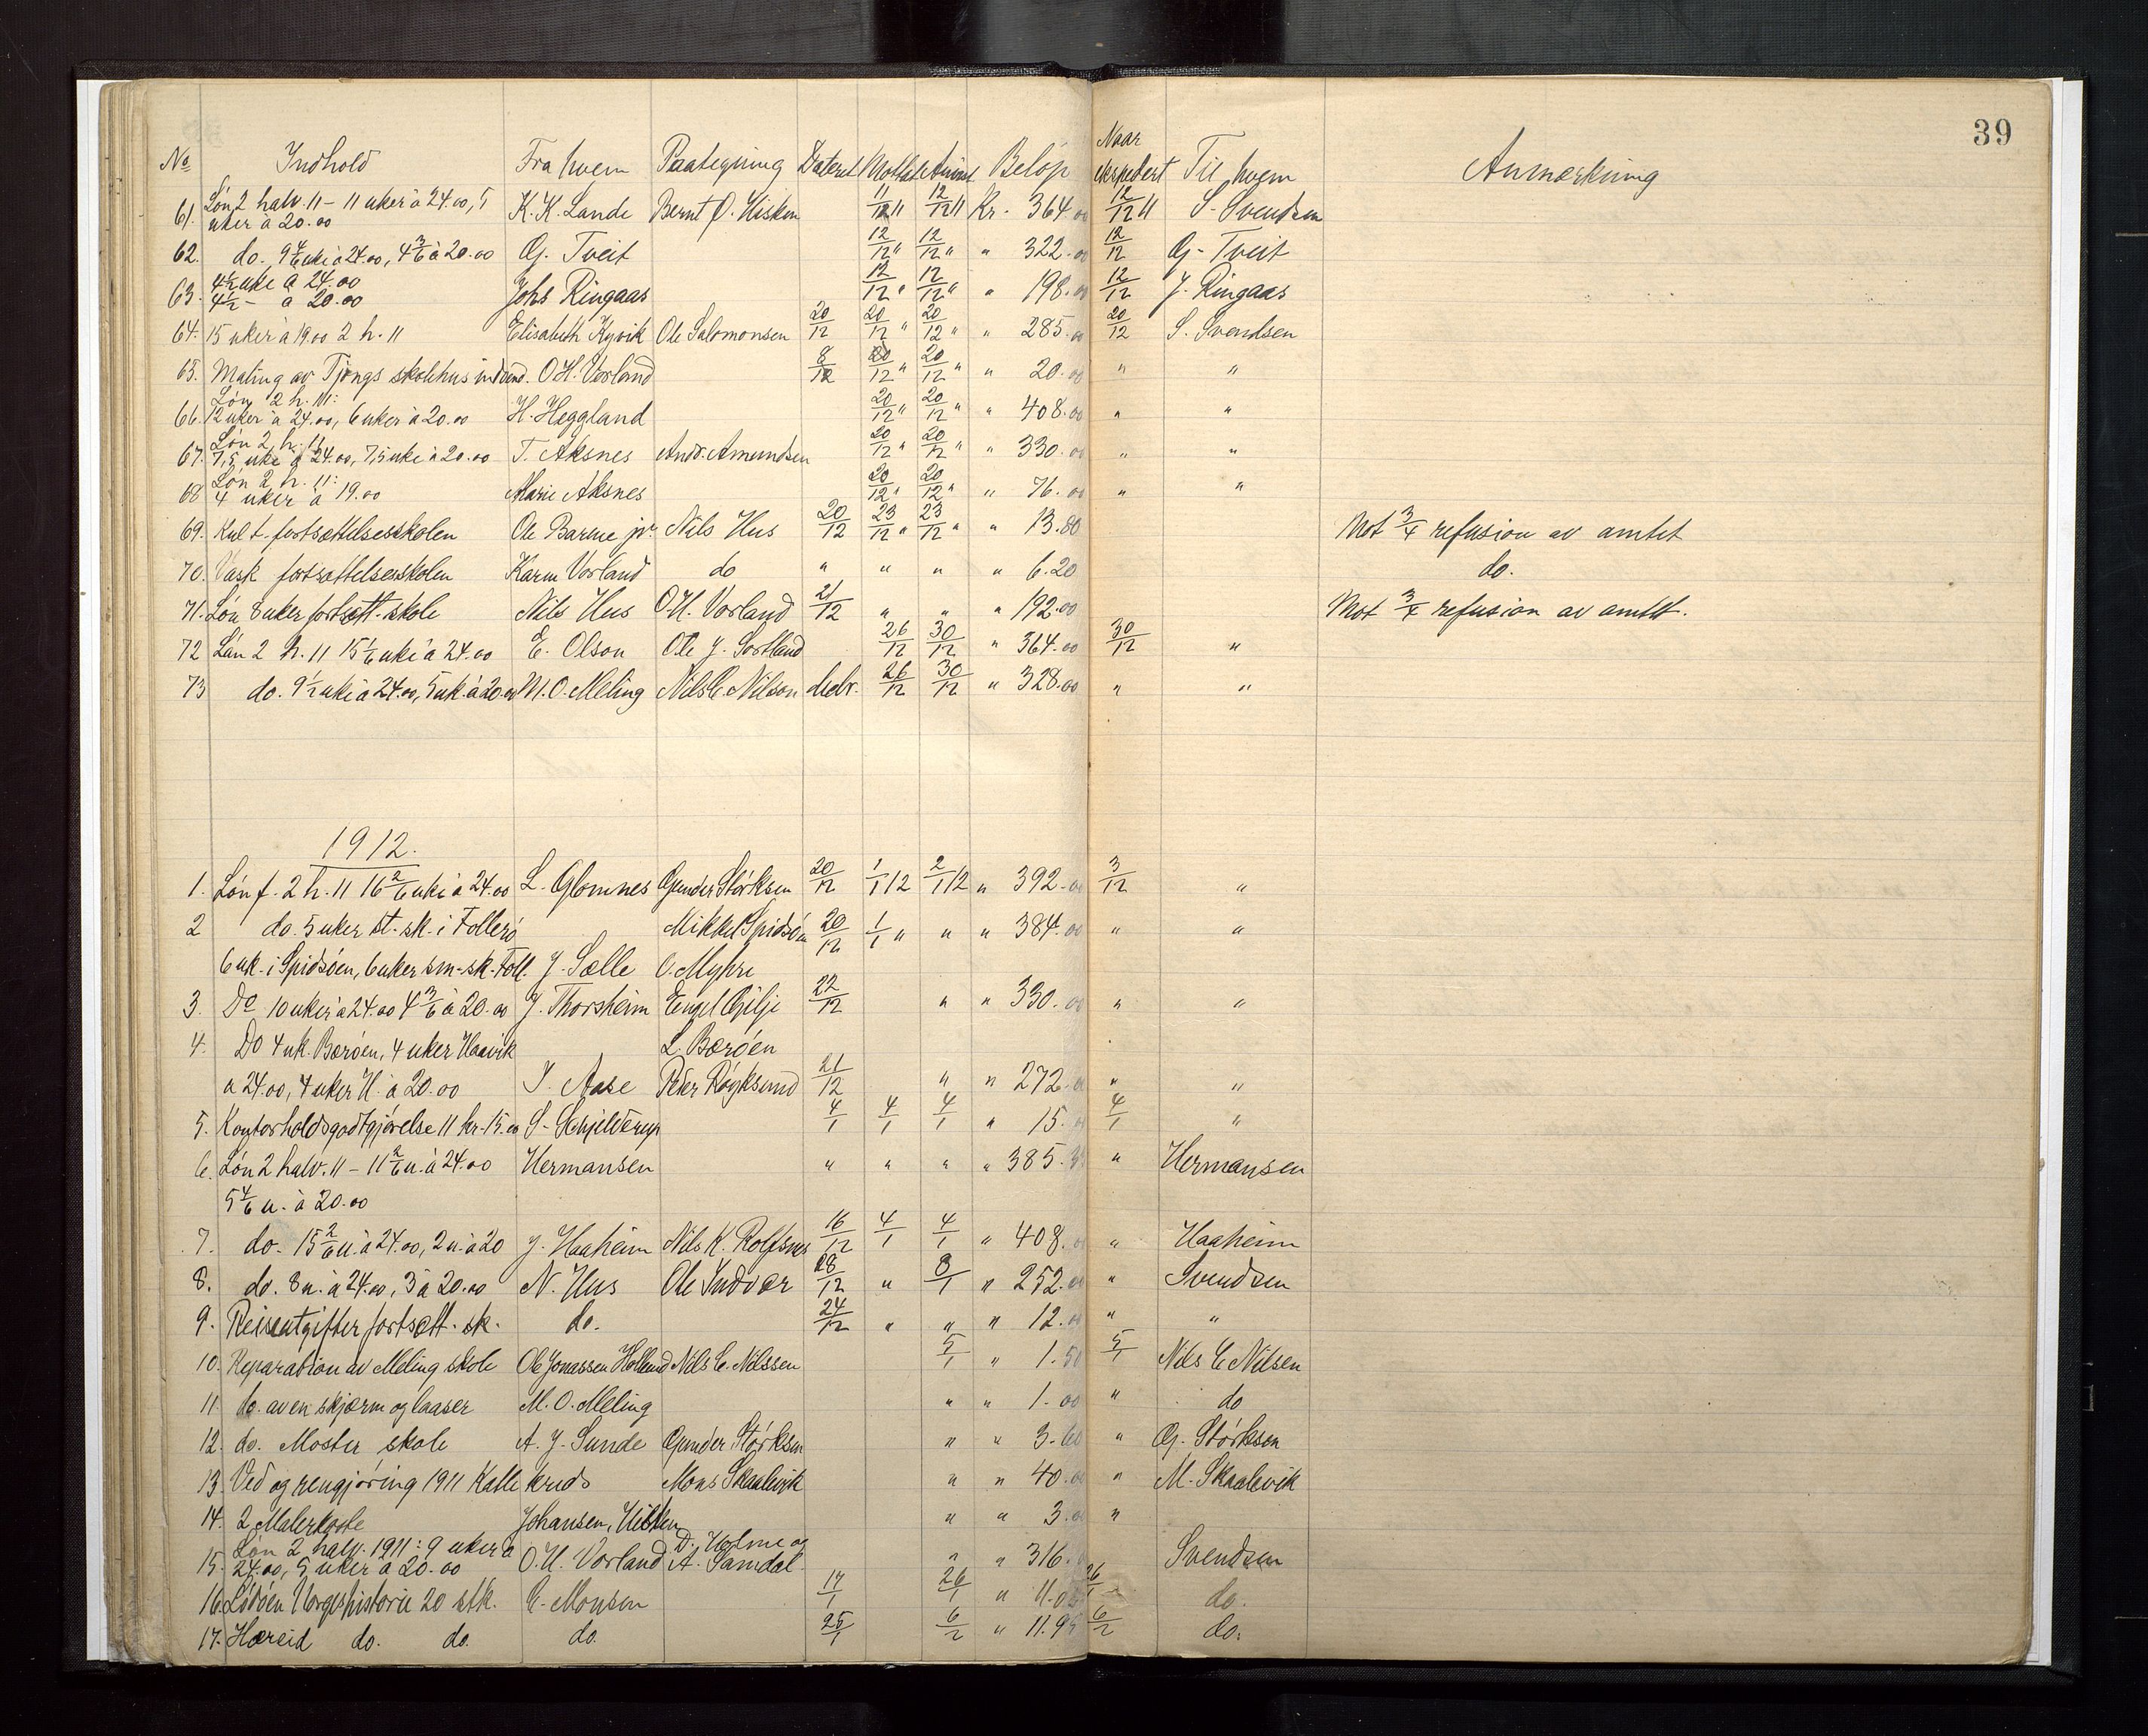 39
No Indhold Fra hvem Paategning Dateret Mottat Anvist Beløp Naar ekspedert Til hvem Anmærkning
Løn 2 halv. 11 - 11 uker à 24.00, 5
61. uker à 20.00 K. K. Lande Bernt O. Hisken 11/12 11 12/12 11 Kr. 364.00 12/12 11 S. Svendsen
62. do. 9 4/6 uke à 24.00, 4 3/6 à 20.00 G. Tveit 12/12 " 12/12 " " 322.00 12/12 G. Tveit
4 1/2 uke à 24.00
63. 4 1/2 - à 20.00 Johs Ringaas 12/12 " 12/12 " " 198.00 12/12 J. Ringaas
64. 15 uker à 19.00 2 h. 11 Elisabeth Kyvik Ole Salomonsen 20/12 20/12 " 20/12 " " 285.00 20/12 S. Svendsen
65. Maling av Tjongs skolehus indvend. O. H. Vorland 8/12 20/12 " 20/12 " " 20.00 " "
Løn 2 h. 11:
66. 12 uker à 24.00, 6 uker à 20.00 H. Heggland 20/12 " 20/12 " " 408.00 " "
Løn 2 h. 11
67. 7,5 uke à 24.00, 7,5 uke à 20.00 T. Aksnes Andr. Amundsen 20/12 " 20/12 " " 330.00 " "
Løn 2 h. 11:
68 4 uker à 19.00 Marie Aksnes 20/12 " 20/12 " " 76.00 " "
69. Kul t. fortsættelsesskolen Ole Barane jr. Nils Hus 20/12 23/12 " 23/12 " " 13.80 Mot 3/4 refusion av amtet
70. Vask fortsættelsesskolen Karen Vorland do " " " " 6.20 do.
71. Løn 8 uker fortsætt. skole Nils Hus O. H. Vorland 21/12 " " " 192.00 Mot 3/4 refusion av amtet.
72 Løn 2 h. 11 15 1/6 uke à 24.00 E. Olson Ole J. Sortland 26/12 30/12 " 364.00 30/12 "
73 do. 9 1/2 uke à 24.00, 5 uk. à 20.00 M. O. Meling Nils C. Nilson decbr. 26/12 30/12 " 328.00 " "
1912.
1. Løn f. 2 h. 11 16 2/6 uke à 24.00 L. Glomnes Gunder Størksen 20/12 1/1 12 2/1 12 " 392.00 3/12 "
2 do. 5 uker st. sk. i Follerø Mikkel Spidsøen 20/12 1/1 " " " 384.00 " "
6 uk. i Spidsøen, 6 uker sm-sk. Foll. J. Sælle O. Myhre
3. Do 10 uker à 24.00 4 3/6 à 20.00 J. Thorsheim Engel Gilje 22/12 " " 330.00 " "
4. Do 4 uk. Børøen, 4 uker Haavik L. Børøen
à 24.00, 4 uker H. à 20.00 I. Aase Peder Røyksund 21/12 " " 272.00 " "
5. Kontorholdsgodtgjørelse 11 kr. 15.00 S. Schjelderup 4/1 4/1 4/1 " 15.00 4/1 "
6. Løn 2 halv. 11 - 11 2/6 u. à 24.00 Hermansen " " " " 385.33 " Hermansen
5 4/6 u. à 20.00
7. do. 15 2/6 u. à 24.00, 2 u. à 20 J. Haaheim Nils K. Rolfsnes 16/12 4/1 4/1 " 408.00 " Haaheim
8. do. 8 u. à 24.00, 3 à 20.00 N. Hus Ole Indvær 28/12 " 8/1 " 252.00 " Svendsen
9. Reiseutgifter fortsætt. sk. do. 24/12 " " " 12.00 " "
10. Reparation av Meling skole Ole Jonassen Holland Nils C. Nilssen 5/1 " 1.50 5/1 Nils C Nilsen
11. do. av en skjærm og laaser M. O. Meling " " 1.00 " do
12. do. Moster skole A. J. Sunde Gunder Størksen " " 3.60 " G. Størksen
13. Ved og rengjøring 1911 Kalle kreds Mons Skaalevik " " 40.00 " M. Skaalevik
14. 2 Malerkoste Johansen, Hisken " " 3.00 "
Løn 2 halv. 1911: 9 uker à D. Holme og
15. 24.00, 5 uker à 20.00 O. H. Vorland A. Samdal. " " 316.00 Svendsen
16. Lødøen Norgeshistorie 20 stk. C. Monsen 17/1 26/1 " 11.05 26/1 do.
17. Hæreid do. do. do. 25/1 6/2 " 11.95 6/2 do.